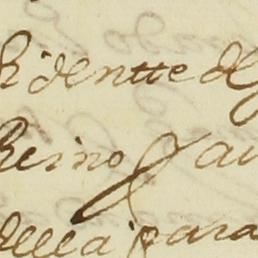 Ridentte de
Reino y au
della para